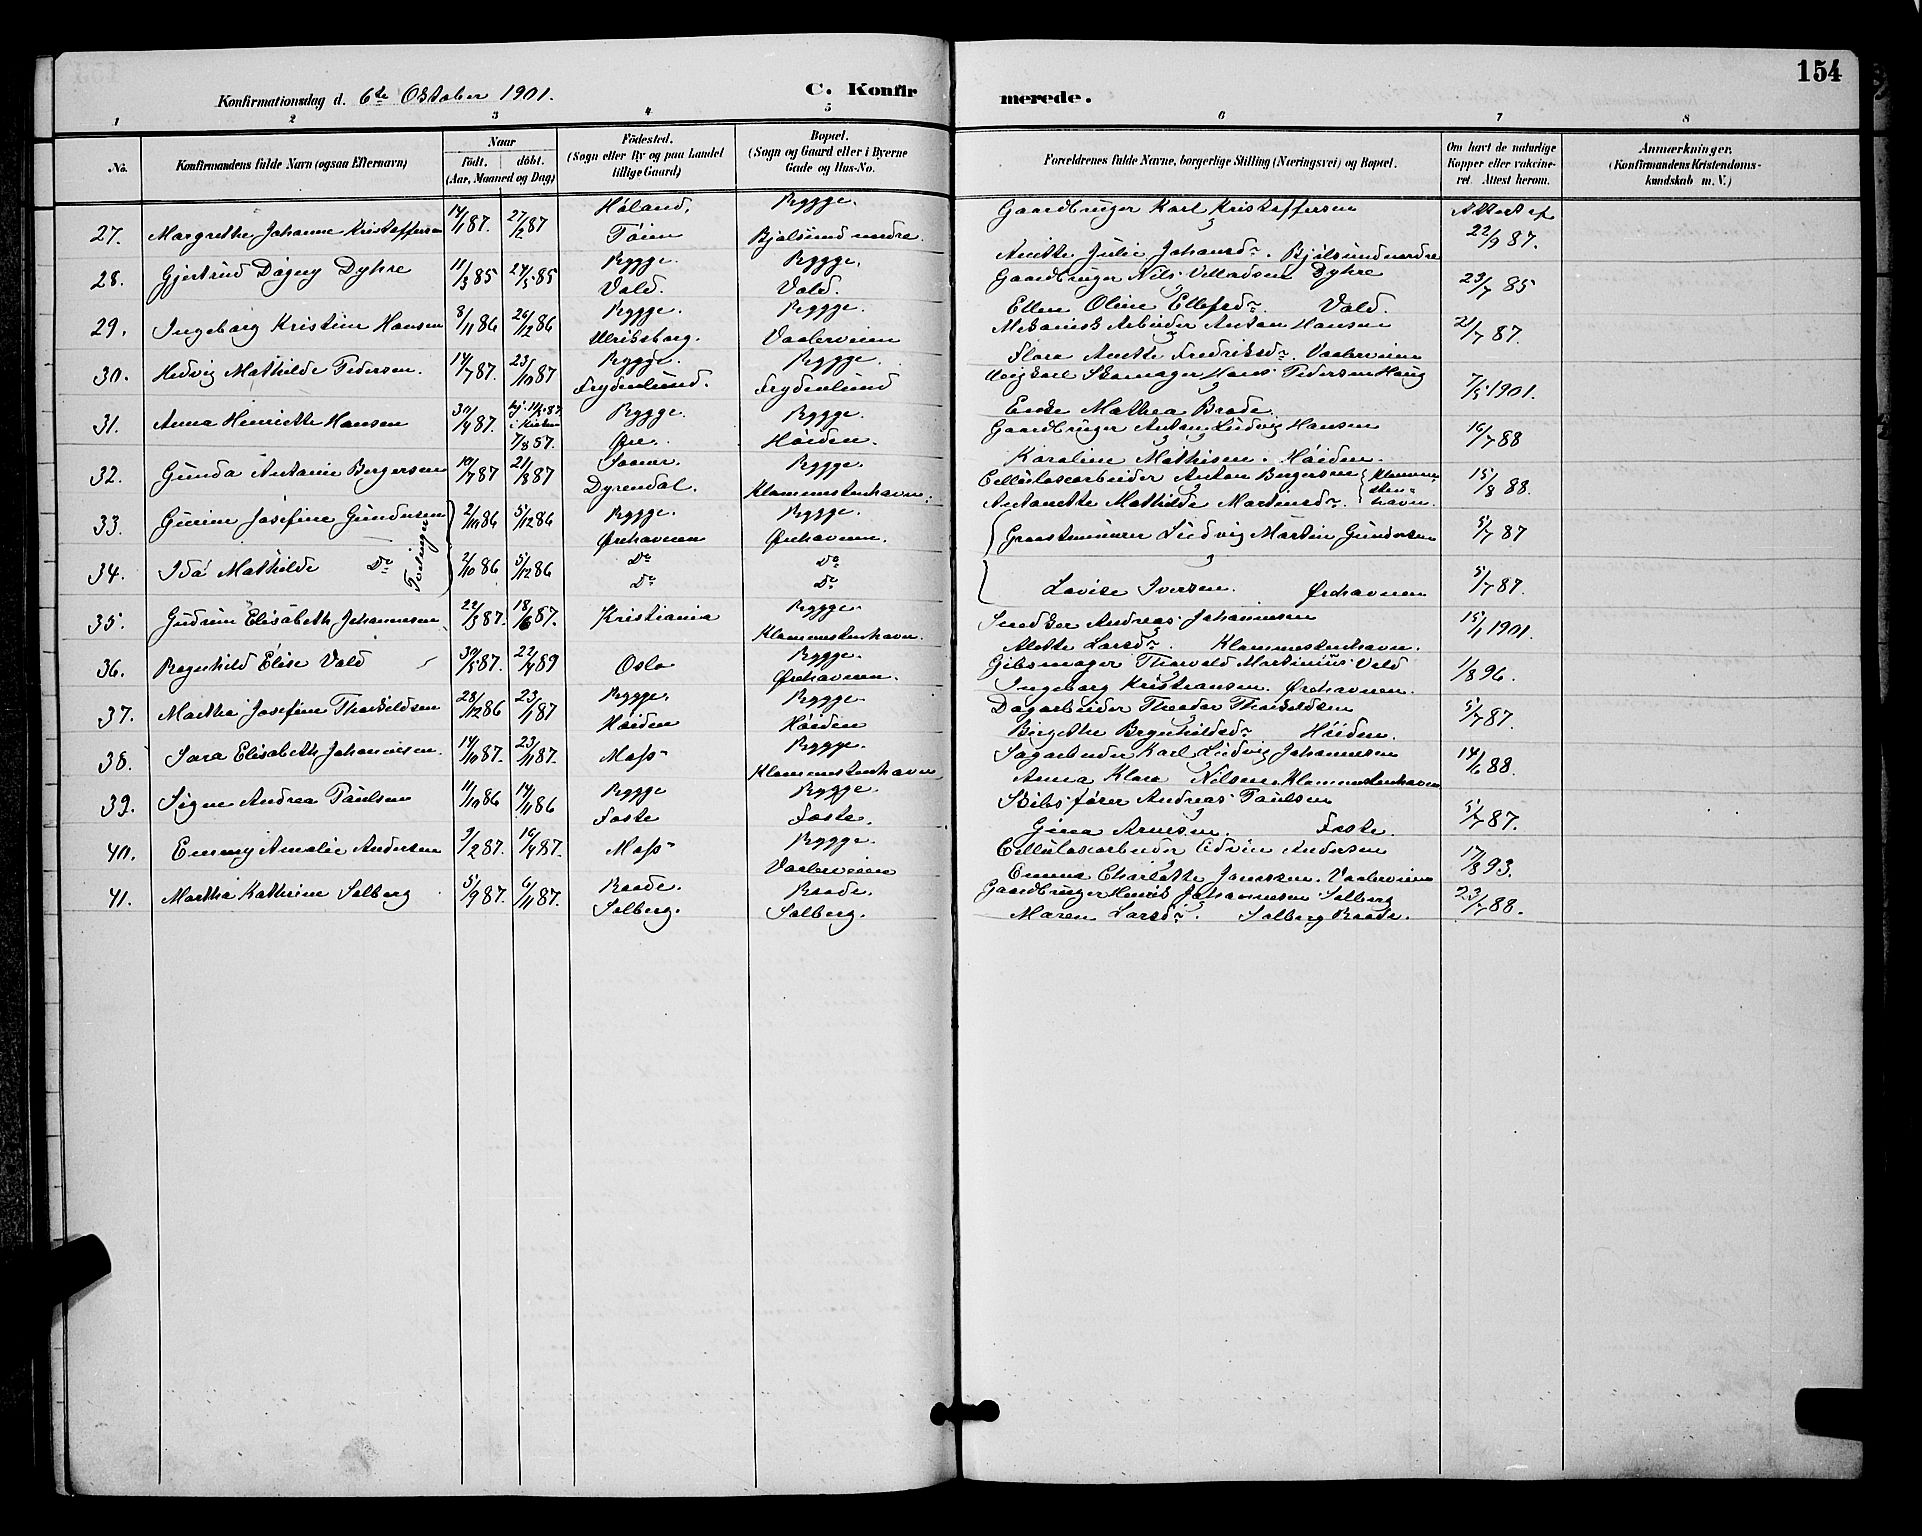 154
Konfirmationsdag d. 6te Oktober 1901. C. Konfir merede.
1 2 3 4 5 6 7 8
No. Konfirmandens fulde Navn (ogsaa Efternavn) Naar födt. döbt. (Aar, Maaned og Dag) Födested. (Sogn eller By og paa Landet tillige Gaard) Bopæl. (Sogn og Gaard eller i Byerne Gade og Hus-No. Forældrenes fulde Navne, borgerlige Stilling (Næringsvei) og Bopæl. Om havt de naturlige Kopper eller vakcineret. Attest herom. Anmærkninger. (Konfirmandens Kristendomskundskab m. V.)
27. Margrethe Johanne Kristoffersen 14/1 87. 27/2 87 Høland. Rygge. Gaardbruger Karl Kristoffersen Attest af
Töien Bjølsund nordre. Anette Julie Johansdr. Bjølsund nordre 22/9 87.
28. Gjertrud Dagny Dyhre 11/3 85 24/5 85 Rygge. Rygge. Gaardbruger Nils Dyhre 23/7 85
Vald. Vald. Ellen Oline Ellefsdr. Vald.
29. Ingeborg Kristine Hansen 8/11 86 26/12 86 Rygge. Rygge. Mekanisk Arbeider Anton Hansen 21/7 87.
Ulriksborg. Vaalerveien Flora Anette Fredriksdr. Vaalerveien
30. Hedvig Mathilde Pedersen. 14/7 87. 23/10 87 Rygge. Rygge. Ungkarl Skomager Hans Pedersen Haug 7/5 1901.
Frydenlund. Frydenlund Enke Mathea Brade.
31. Anna Henriette Hansen 30/4 87. i Kirken 7/8 87. Rygge. Rygge. Gaardbruger Anton Ludvig Hansen 16/7 88
Øre. Høiden. Karoline Mathisen. Høiden.
32. Gunda Antonie Bergersen 10/7 87 21/8 87 Soner. Rygge. Cellulosearbeider Anton Bergersen Klommestenhavn. 15/8 88.
Dyrendal. Klommestenhavn. Antonette Mathilde Martinsdr.
33. Gurine Josefine Gundersen Tvillinger 2/10 86 5/12 86 Rygge. Rygge. Graastensmurer Ludvig Martin Gundersen 5/7 87
Ørehavnen Ørehavnen.
34. Ida Mathilde Do 2/10 86 5/12 86 Do Do
Do Do Lovise Iversen. Ørehavnen 5/7 87.
35. Gudrun Elisabeth Johannesen 22/3 87. 18/6 87. Kristiania Rygge. Snedker Andreas Johannesen 15/1 1901.
Klommestenhavn. Alette Larsdr. Klommestenhavn.
36. Ragnhild Elise Vold 30/5 87. 22/4 89 Oslo Rygge. Gibsmager Thorvald Martinius Vold 1/8 96.
Ørehavnen. Ingeborg Kristiansen. Ørehavnen.
37. Martha Josefine Thorkildsen 28/12 86 23/1 87 Rygge. Rygge. Dagarbeider Theodor Thorkildsen 5/7 87.
Høiden Høiden Birgethe Brynhildsdr Höiden.
38. Sara Elisabeth Johannesen. 14/10 87. 23/11 87. Moss Rygge. Sagarbeider Karl Ludvig Johannesen 14/6 88.
Klommestenhavn Anna Klara Nilsen Klommestenhavn
39. Signe Andrea Paulsen 11/10 86 14/11 86 Rygge Rygge. Skibsfører Andreas Paulsen 5/7 87.
Foste Foste. Gina Arnesen. Foste.
40. Emmy Amalie Andersen 9/2 87. 10/4 87. Moss Rygge. Cellulosearbeider Edvin Andersen 17/8 93.
Vaalerveien Emma Charlotte Jonssen. Vaalerveien
41. Martha Kathrine Solberg 5/9 87. 6/11 87. Raade. Raade. Gaardbruger Henrik Johannesen Solberg 23/7 88.
Solberg. Solberg. Maren Larsdr. Solberg Raade.